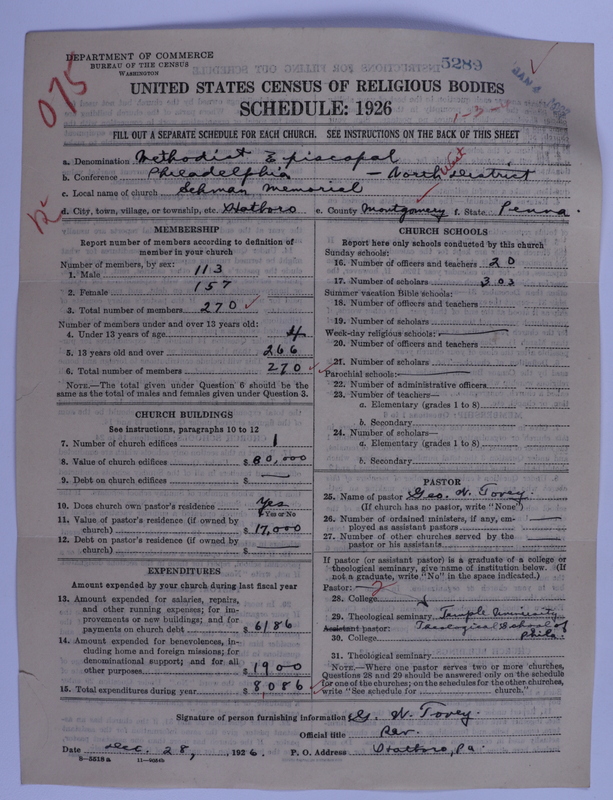 DEPARTMENT OF COMMERCE
BUREAU OF THE CENSUS
WASHINGTON
5289
075
UNITED STATES CENSUS OF RELIGIOUS BODIES
SCHEDULE: 1926
FILL OUT A SEPARATE SCHEDULE FOR EACH CHURCH. SEE INSTRUCTIONS ON THE BACK OF THIS SHEET
a. Denomination Methodist Episcopal
b. Conference Philadelphia — North District
c. Local name of church Lehman Memorial
d. City, town, village, or township, etc. Hatboro e. County Montgomery f. State Penna.
MEMBERSHIP
Report number of members according to definition of
member in your church
Number of members, by sex:
1. Male 113
2. Female 157
3. Total number of members 270
Number of members under and over 13 years old:
4. Under 13 years of age 4
5. 13 years old and over 266
6. Total number of members 270
NOTE.—The total given under Question 6 should be the
same as the total of males and females given under Question 3.
CHURCH BUILDINGS
See instructions, paragraphs 10 to 12
7. Number of church edifices 1
8. Value of church edifices $ 80,000
9. Debt on church edifices $ —
10. Does church own pastor's residence? Yes
Yes or No
11. Value of pastor's residence (if owned by
church) $ 17,000
12. Debt on pastor's residence (if owned by
church) $ —
EXPENDITURES
Amount expended by your church during last fiscal year
13. Amount expended for salaries, repairs,
and other running expenses; for im-
provements or new buildings; and for
payments on church debt $ 6186
14. Amount expended for benevolences, in-
cluding home and foreign missions; for
denominational support; and for all
other purposes $ 1900
15. Total expenditures during year $ 8,086
CHURCH SCHOOLS
Report here only schools conducted by this church
Sunday schools:
16. Number of officers and teachers 20
17. Number of scholars 303
Summer vacation Bible schools:
18. Number of officers and teachers
19. Number of scholars
Week-day religious schools: —
20. Number of officers and teachers
21. Number of scholars
Parochial schools: —
22. Number of administrative officers
23. Number of teachers—
a. Elementary (grades 1 to 8)
b. Secondary
24. Number of scholars—
a. Elementary (grades 1 to 8)
b. Secondary
PASTOR
25. Name of pastor Geo. W. Tovey.
(If church has no pastor, write "None")
26. Number of ordained ministers, if any, em-
ployed as assistant pastors —
27. Number of other churches served by the
pastor or his assistants —
If pastor (or assistant pastor) is a graduate of a college or
theological seminary, give name of institution below. (If
not a graduate, write "No" in the space indicated.)
Pastor: — 2
28. College
29. Theological seminary Temple University
Assistant pastor: Theological School of
30. College Phila.
31. Theological seminary
NOTE.—Where one pastor serves two or more churches,
Questions 28 and 29 should be answered only on the schedule
for one of the churches; on the schedules for the other churches,
write "See schedule for church."
Signature of person furnishing information G. W. Tovey.
Official title Rev.
Date Dec. 28, 1926. P. O. Address Hatboro, Pa.
8—5518 a 11—9084b